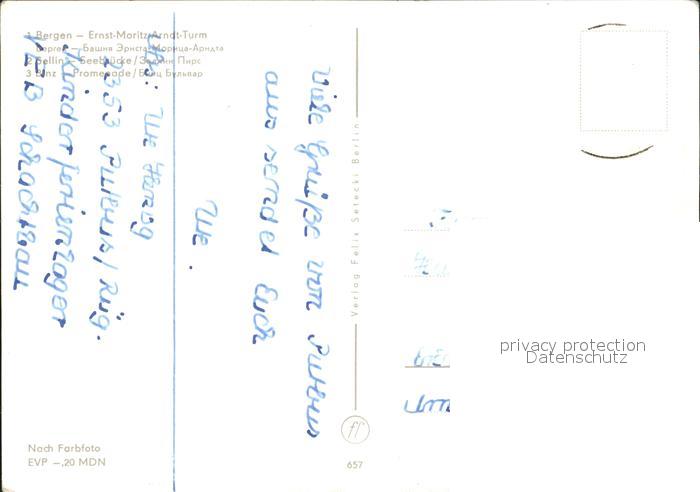 1 Bergen – Ernst-Moritz-Arndt-Turm
Берген – Башня Эрнста-Морица-Арндта
2 Sellin – Seebrücke / Зеллин Пирс
3 Binz – Promenade / Бинц Бульвар
Viele Grüße von Putbus
aus sendet Euch
Ute.
Abs.: Ute Herzog
2353 Putbus / Rüg.
Kinderferienlager
VEB
Verlag Felix Setecki Berlin
ff
657
Nach Farbfoto
EVP –,20 MDN
privacy protection
Datenschutz